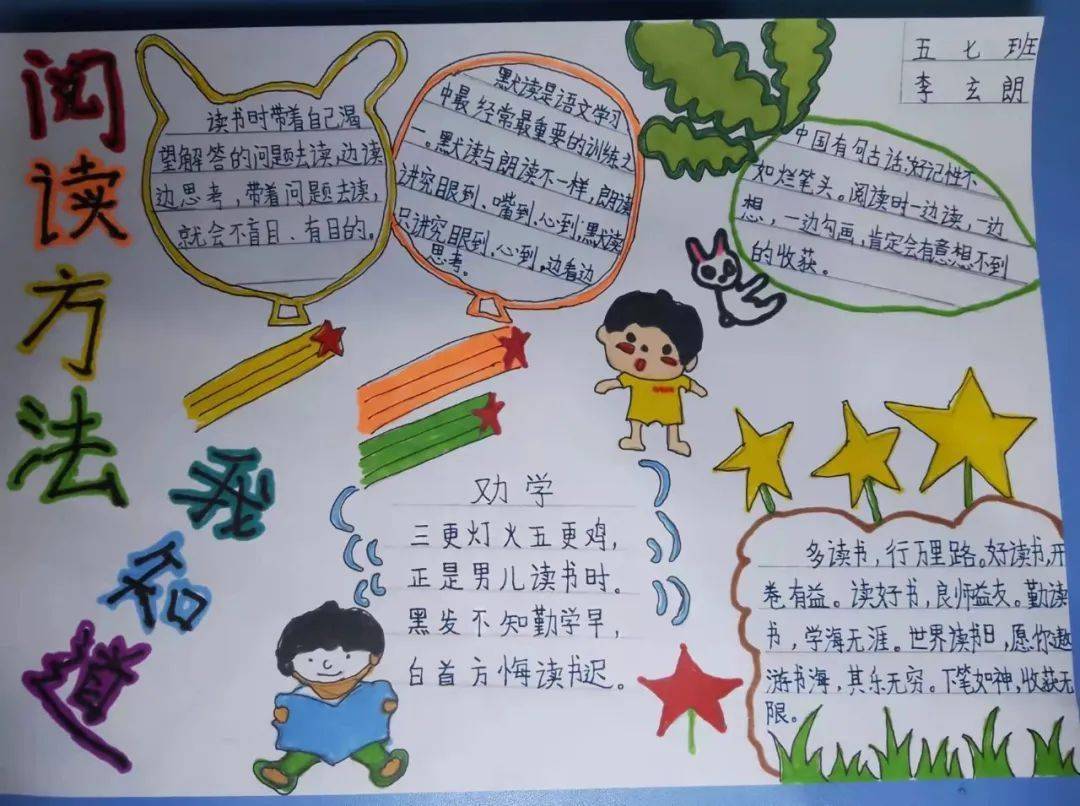 阅读方法我知道
五七班
李玄朗
读书时带着自己渴
望解答的问题去读,边读
边思考,带着问题去读,
就会不盲目、有目的。
默读是语文学习
中最经常最重要的训练之
一。默读与朗读不一样,朗读
讲究眼到、嘴到、心到;默读
只讲究眼到、心到。边看边
思考。
中国有句古话:好记性不
如烂笔头。阅读时一边读,一边
想,一边勾画,肯定会有意想不到
的收获。
劝学
三更灯火五更鸡,
正是男儿读书时。
黑发不知勤学早,
白首方悔读书迟。
多读书,行万里路。好读书,开
卷有益。读好书,良师益友。勤读
书,学海无涯。世界读书日,愿你遨
游书海,其乐无穷。下笔如神,收获无
限。